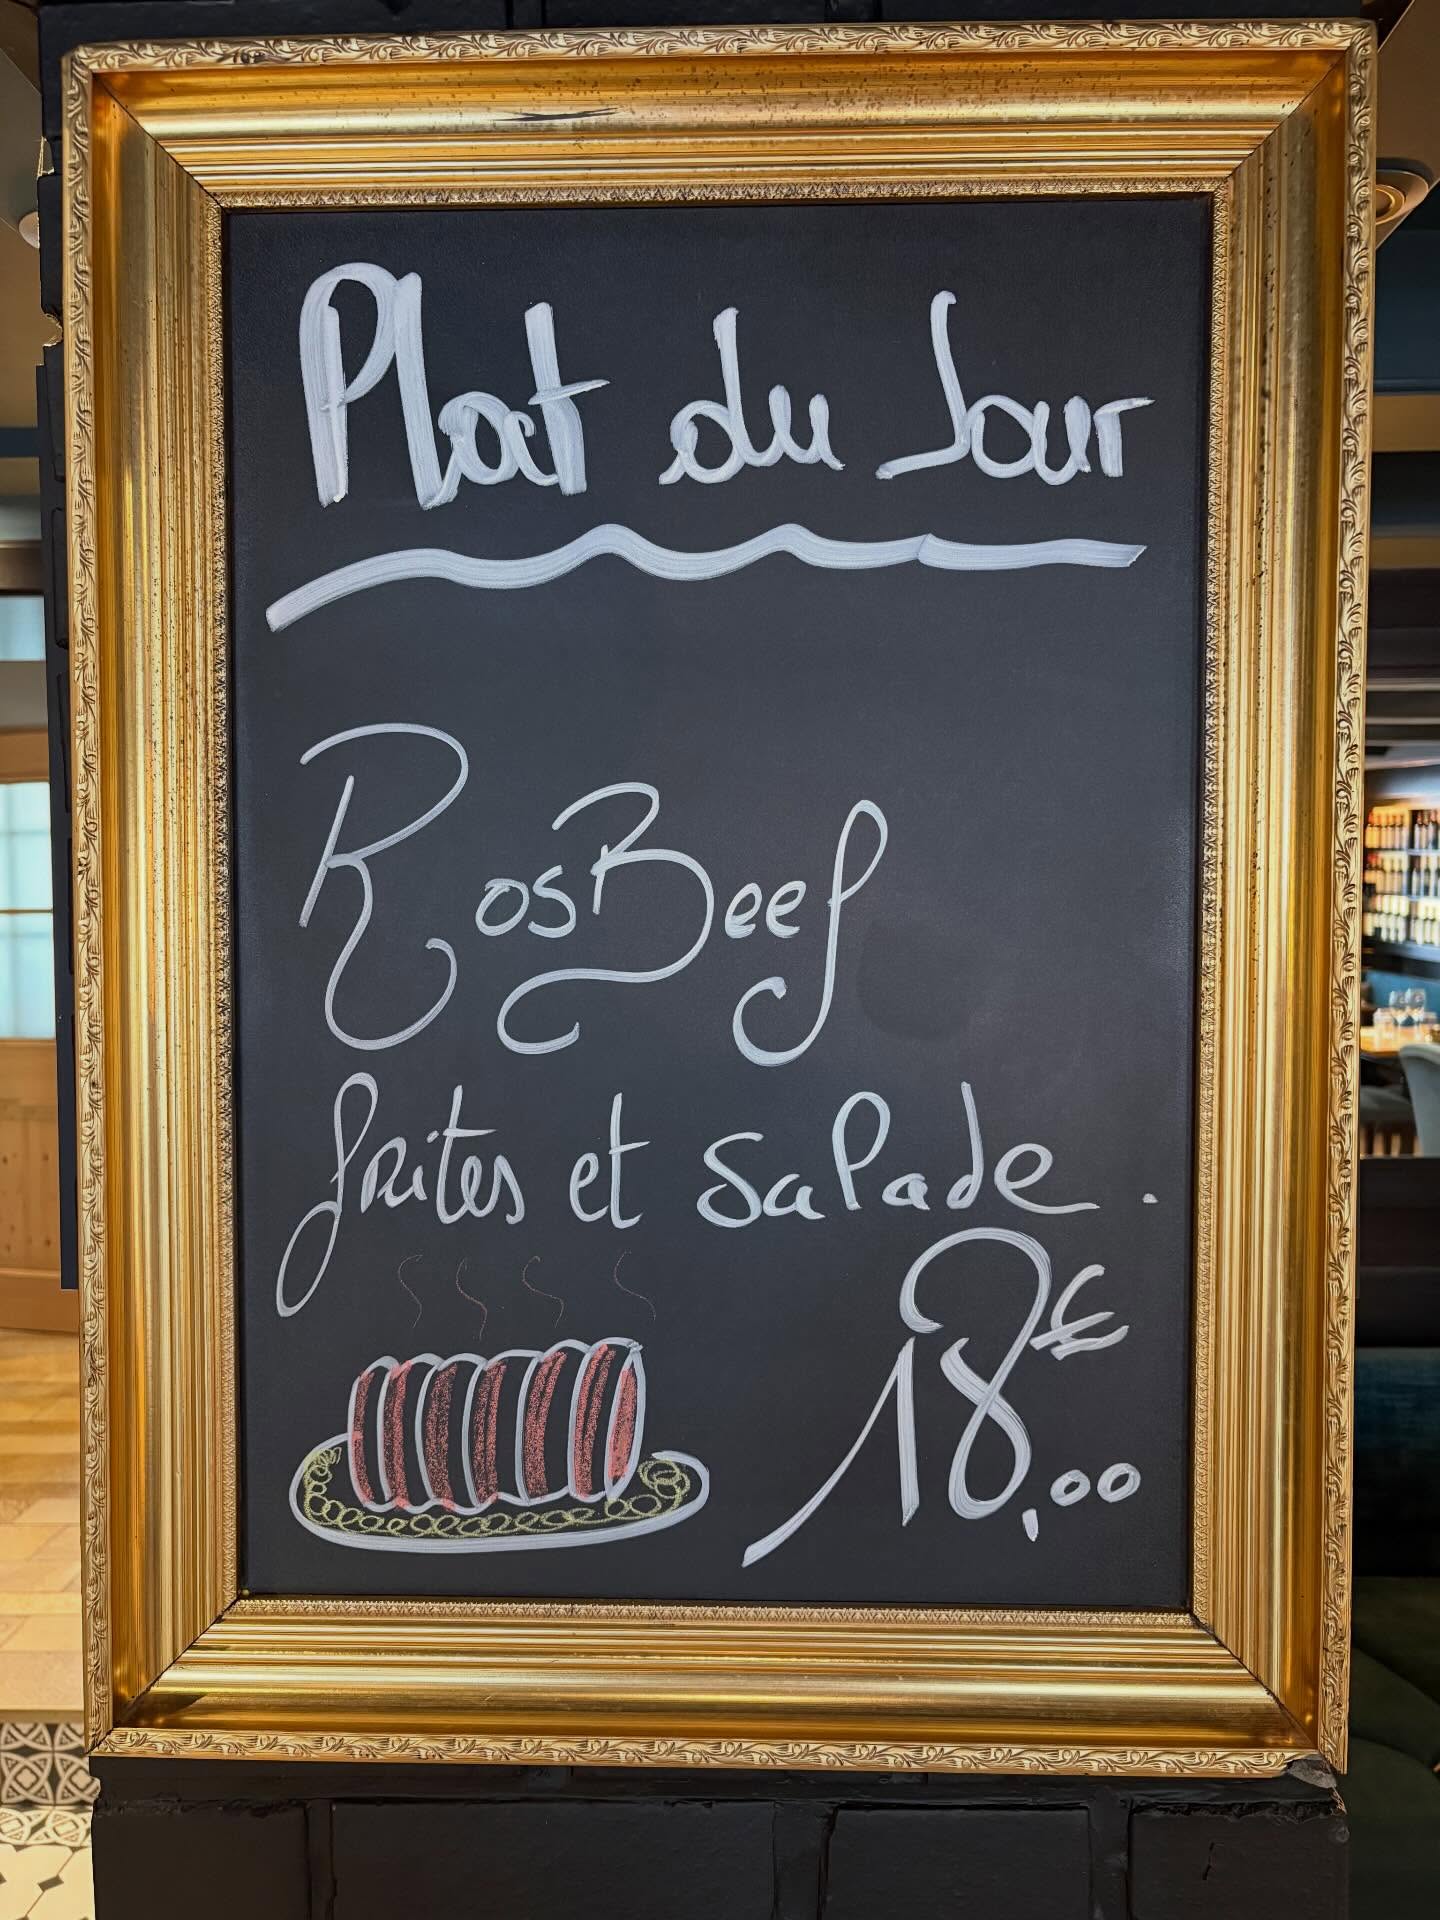 Plat du Jour
RosBeef
frites et salade.
18€,00